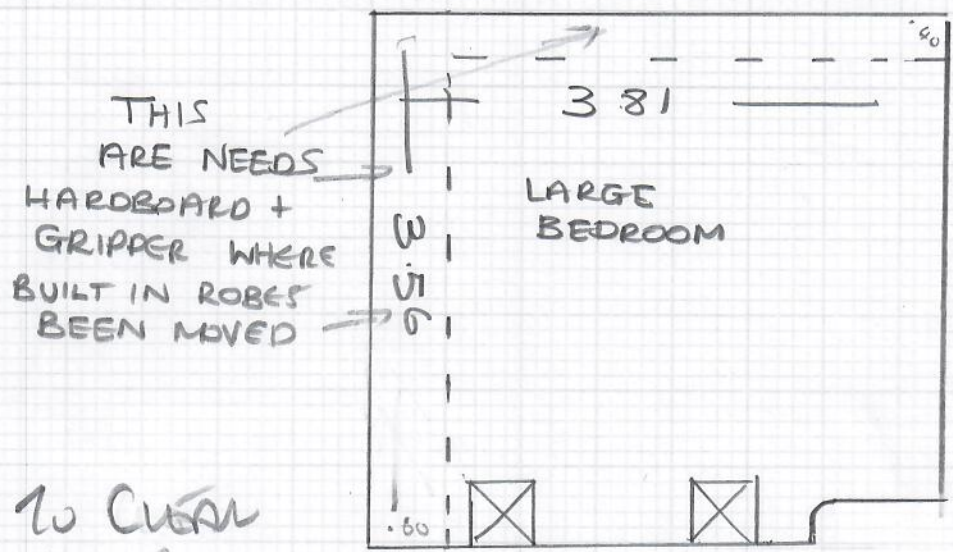 THIS
ARE NEEDS
HARDBOARD +
GRIPPER WHERE
BUILT IN ROBES
BEEN MOVED
.60
3 81
LARGE
BEDROOM
3.56
.60
To CLEAR